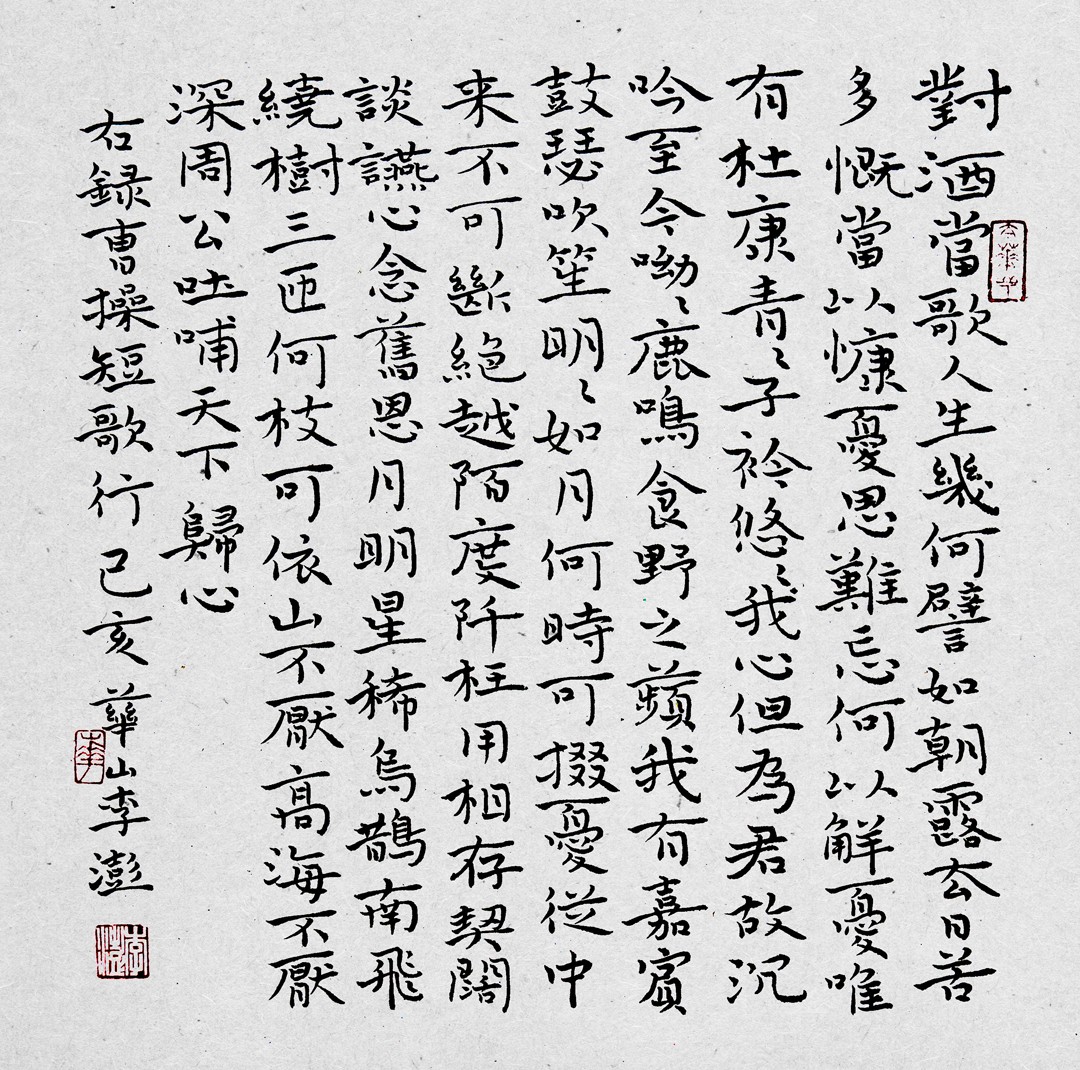 對酒當歌人生幾何譬如朝露去日苦
多慨當以慷憂思難忘何以解憂唯
有杜康青〻子衿悠〻我心但為君故沉
吟至今呦〻鹿鳴食野之蘋我有嘉賓
鼓瑟吹笙明〻如月何時可掇憂從中
来不可斷絕越陌度阡枉用相存契闊
談讌心念舊恩月明星稀烏鵲南飛
繞樹三匝何枝可依山不厭高海不厭
深周公吐哺天下歸心
右録曹操短歌行己亥華山李澎
李澎